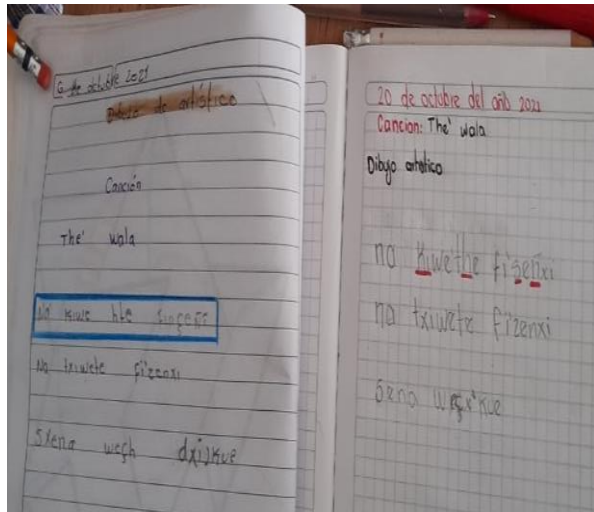 6 de octubre 2021
Dibujo de artístico
Canción
The' wala
No kiwe hte
Na txiwete fi'zenxi
Sxena weçh dxijkue
20 de octubre del año 2021
Cancion: The' wala
Dibujo artistico
na kiwethe fisenxi
na txiwete fizenxi
sena